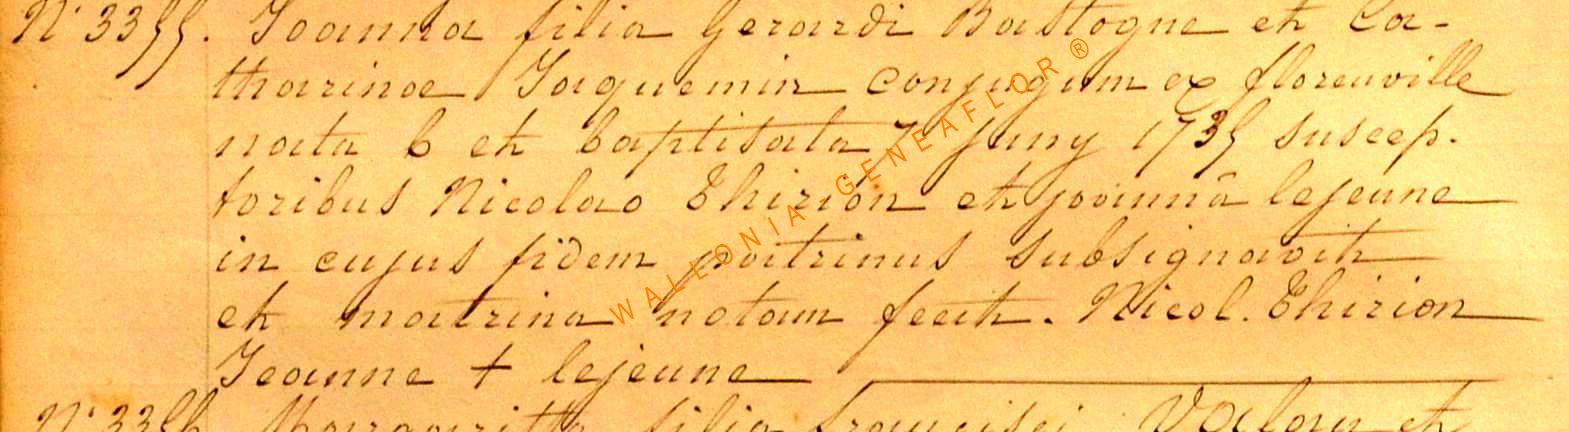 N° 3355. Joanna filia Gerardi Bastogne et Ca-
tharinae Jaquemin conjugum ex florenville
nata 6 et baptisata 7 Juny 1735 suscep-
toribus Nicolao Thirion et joannâ lejeune
in cujus fidem patrinus subsignavit
et matrina notam fecit. Nicol. Thirion
Jeanne + lejeune
N° 3356 Margaritta filia francisci et
WALLONIA GENEAFLOR ®